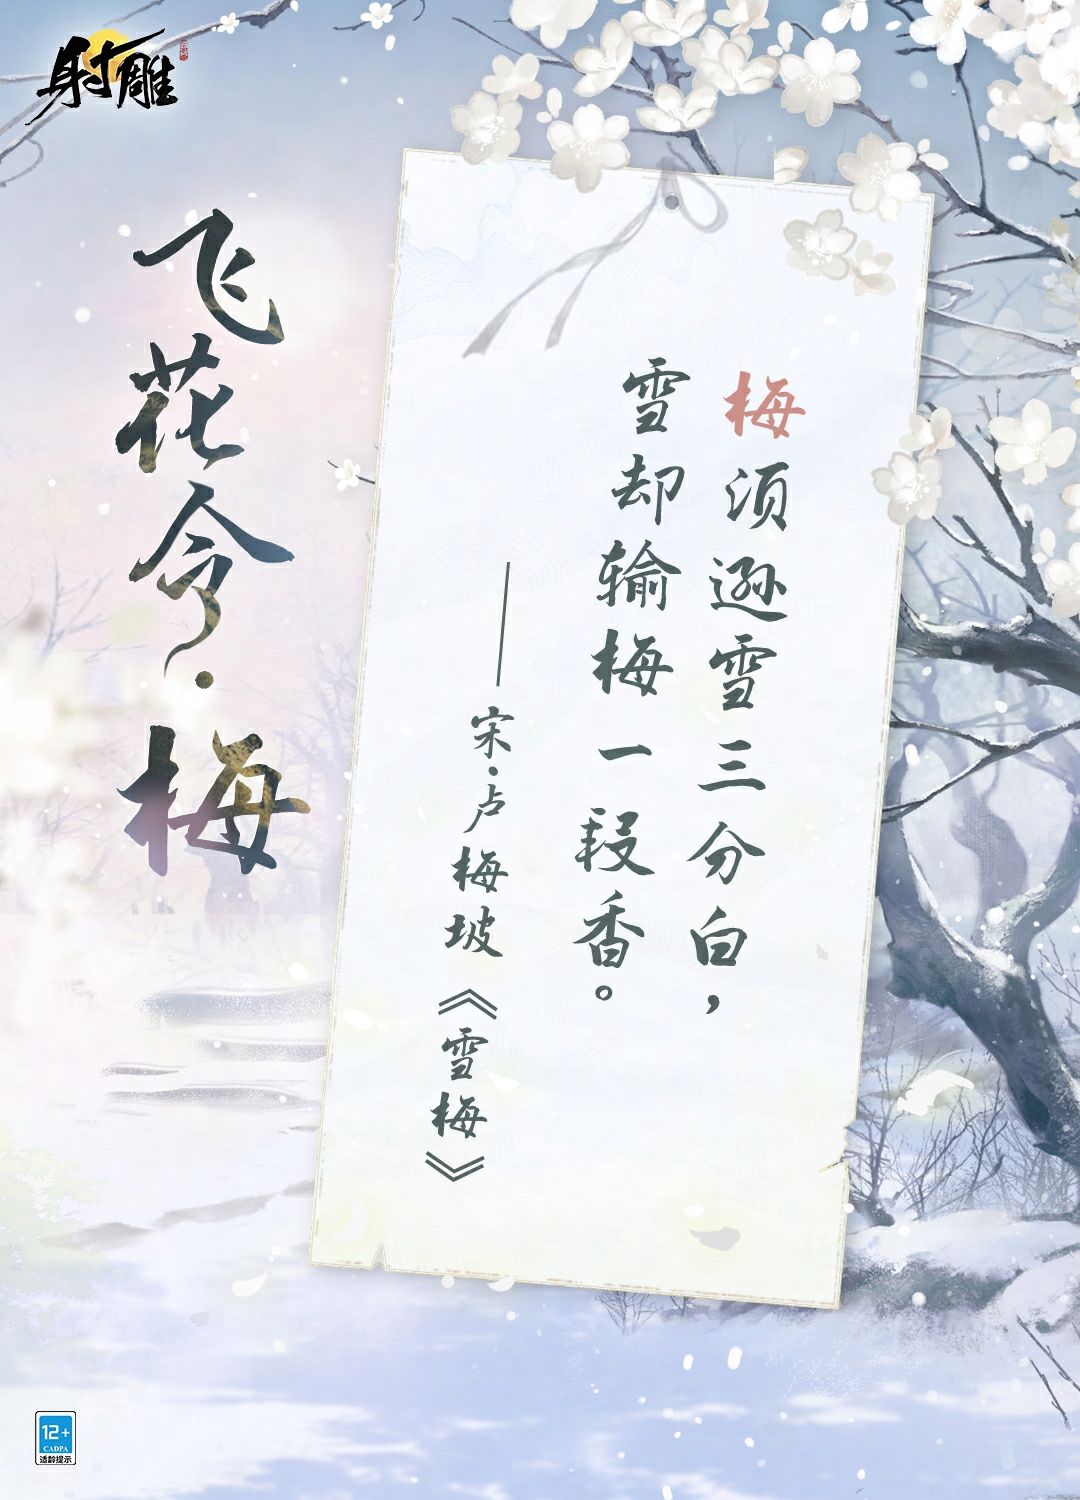 射雕
飞花令·梅
梅须逊雪三分白，
雪却输梅一段香。
——宋·卢梅坡《雪梅》
12+
CADPA
适龄提示